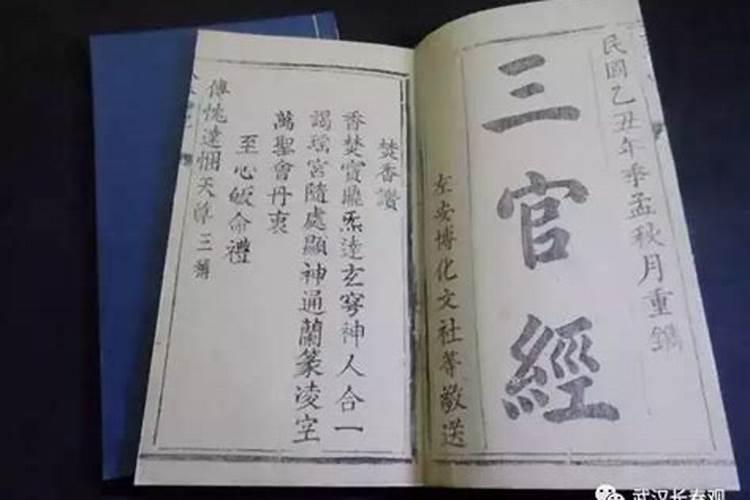 民國乙丑年季孟秋月重鐫
三官經
左安博化文社等敬送
焚香讚
香焚寶鼎炁達玄穹神人合一
謁瑤宮隨處顯神通蘭篆淩空
萬聖會丹衷
至心皈命禮
傳忱達悃天尊三稱
武汉长春观